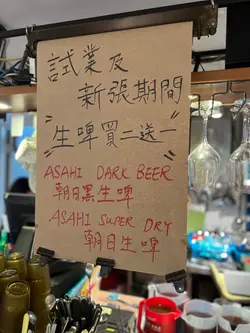 試業及
新張期間
"生啤買二送一"
ASAHI DARK BEER
朝日黑生啤
ASAHI SUPER DRY
朝日生啤